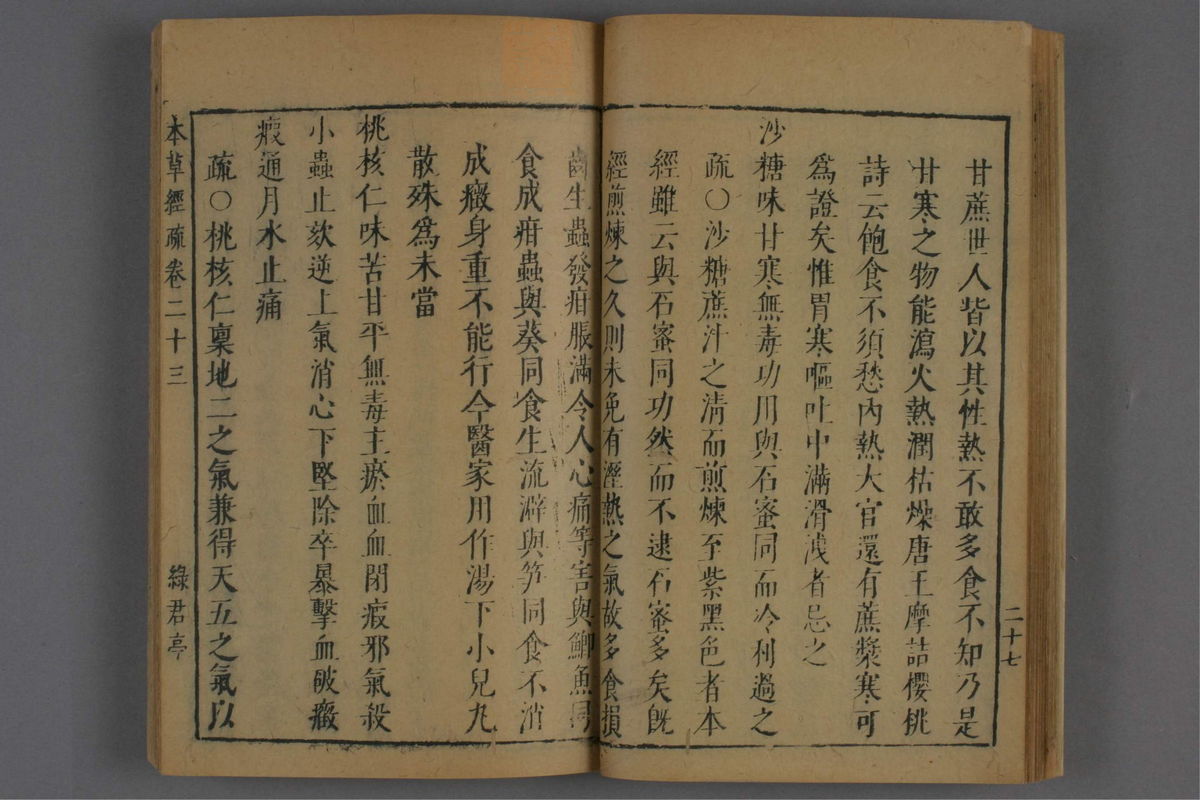 二十七
甘蔗世人皆以其性熱不敢多食不知乃是
甘寒之物能瀉火熱潤枯燥唐王摩詰櫻桃
詩云飽食不須愁內熱大官還有蔗漿寒可
爲證矣惟胃寒嘔吐中滿滑洩者忌之
沙糖味甘寒無毒功用與石蜜同而冷利過之
疏○沙糖蔗汁之清而煎煉至紫黑色者本
經雖云與石蜜同功然而不逮石蜜多矣旣
經煎煉之久則未免有溼熱之氣故多食損
齒生蟲發疳脹滿令人心痛等害與鯽魚同
食成疳蟲與葵同食生流澼與笋同食不消
成癥身重不能行今醫家用作湯下小兒丸
散殊爲未當
桃核仁味苦甘平無毒主瘀血血閉瘕邪氣殺
小蟲止欬逆上氣消心下堅除卒暴擊血破癥
瘕通月水止痛
疏○桃核仁稟地二之氣兼得天五之氣以
本草經疏卷二十三
綠君亭